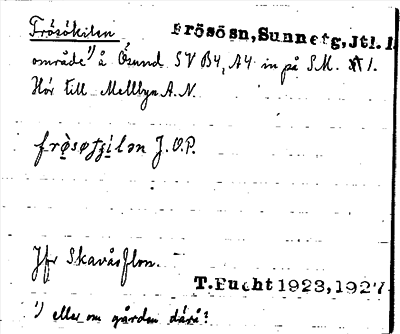 Frösökilen
Frösösn, Sunnetg, Jtl. 1
område ¹) å Ösund SV B4, A4 in på SM. 1.
Hör till Mellbyn A.N.
J.O.P.
Jfr Skavåsflon.
T. Bucht 1923, 1927
¹) eller om gården därå?